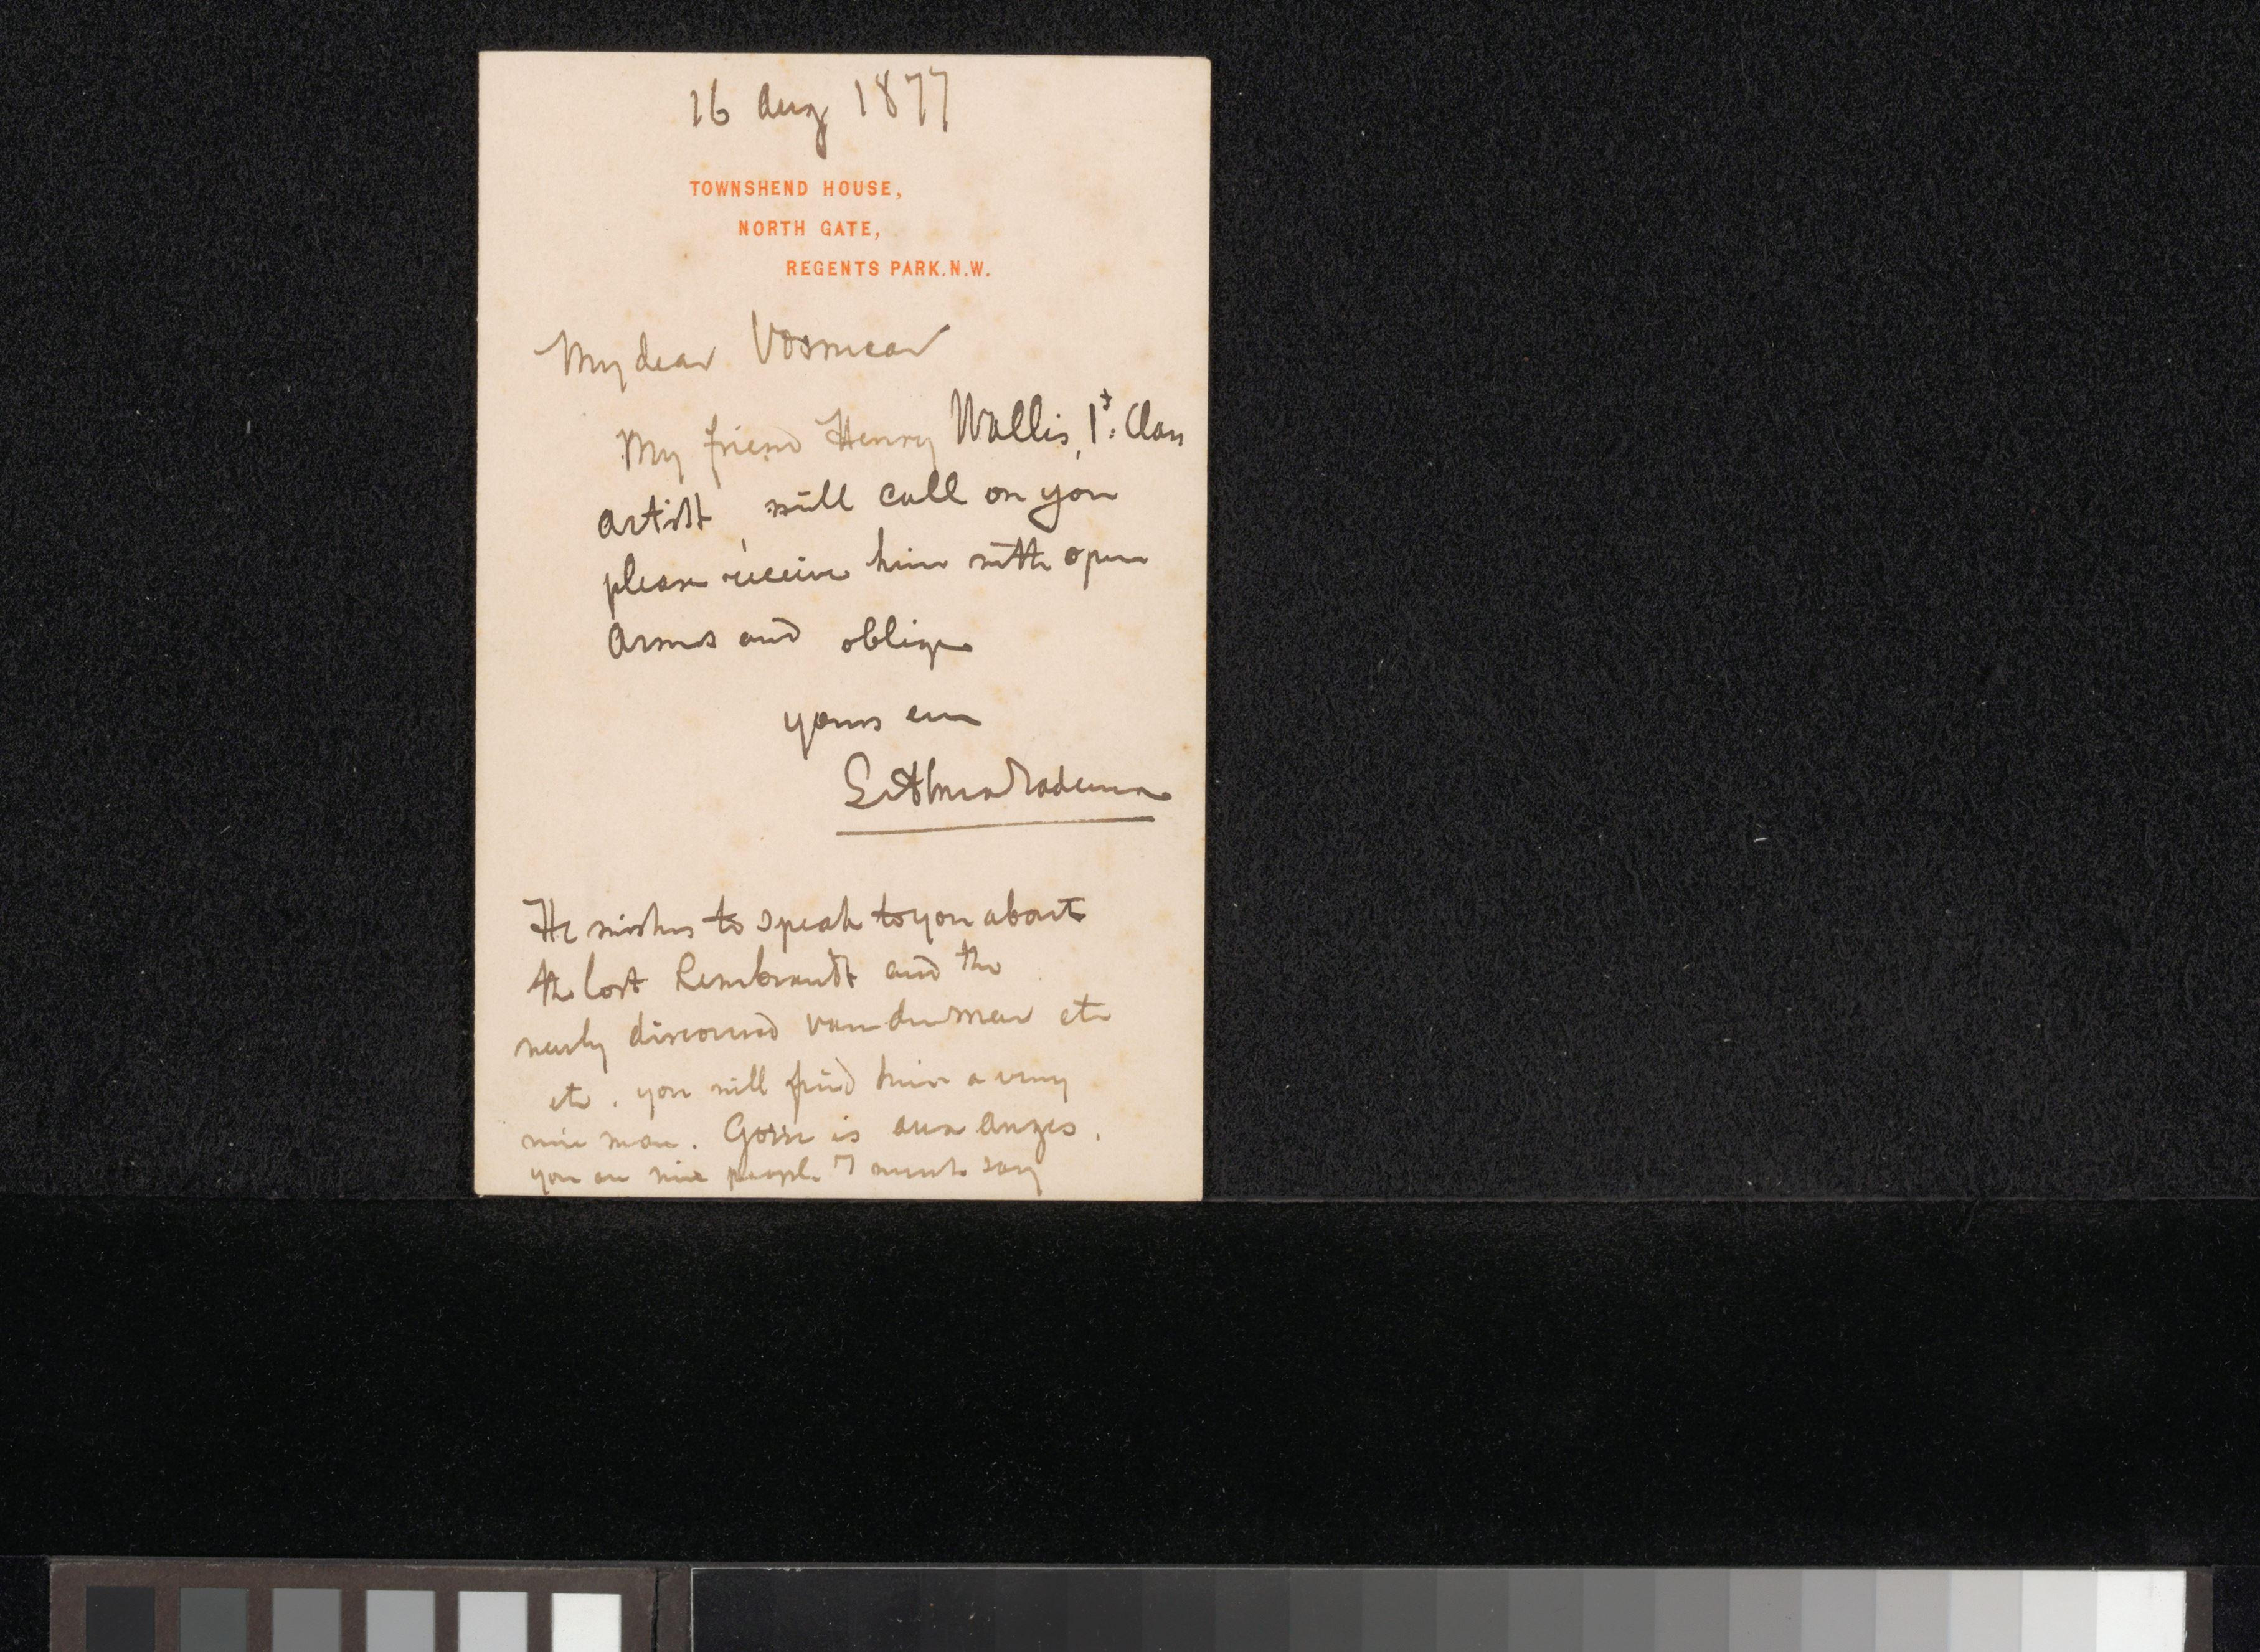 16 Aug 1877
TOWNSHEND HOUSE,
NORTH GATE,
REGENTS PARK.N.W.
My dear Vosmear
My friend Henry Wallis, 1st. Class
artist, will call on you
please receive him with open
arms and oblige
yours ever
L Alma Tadema
He wishes to speak to you about
the lost Rembrandt and the
newly discovered van der Meer etc
etc. you will find him a very
nice man. Gosse is aux anges.
you are nice people I must say